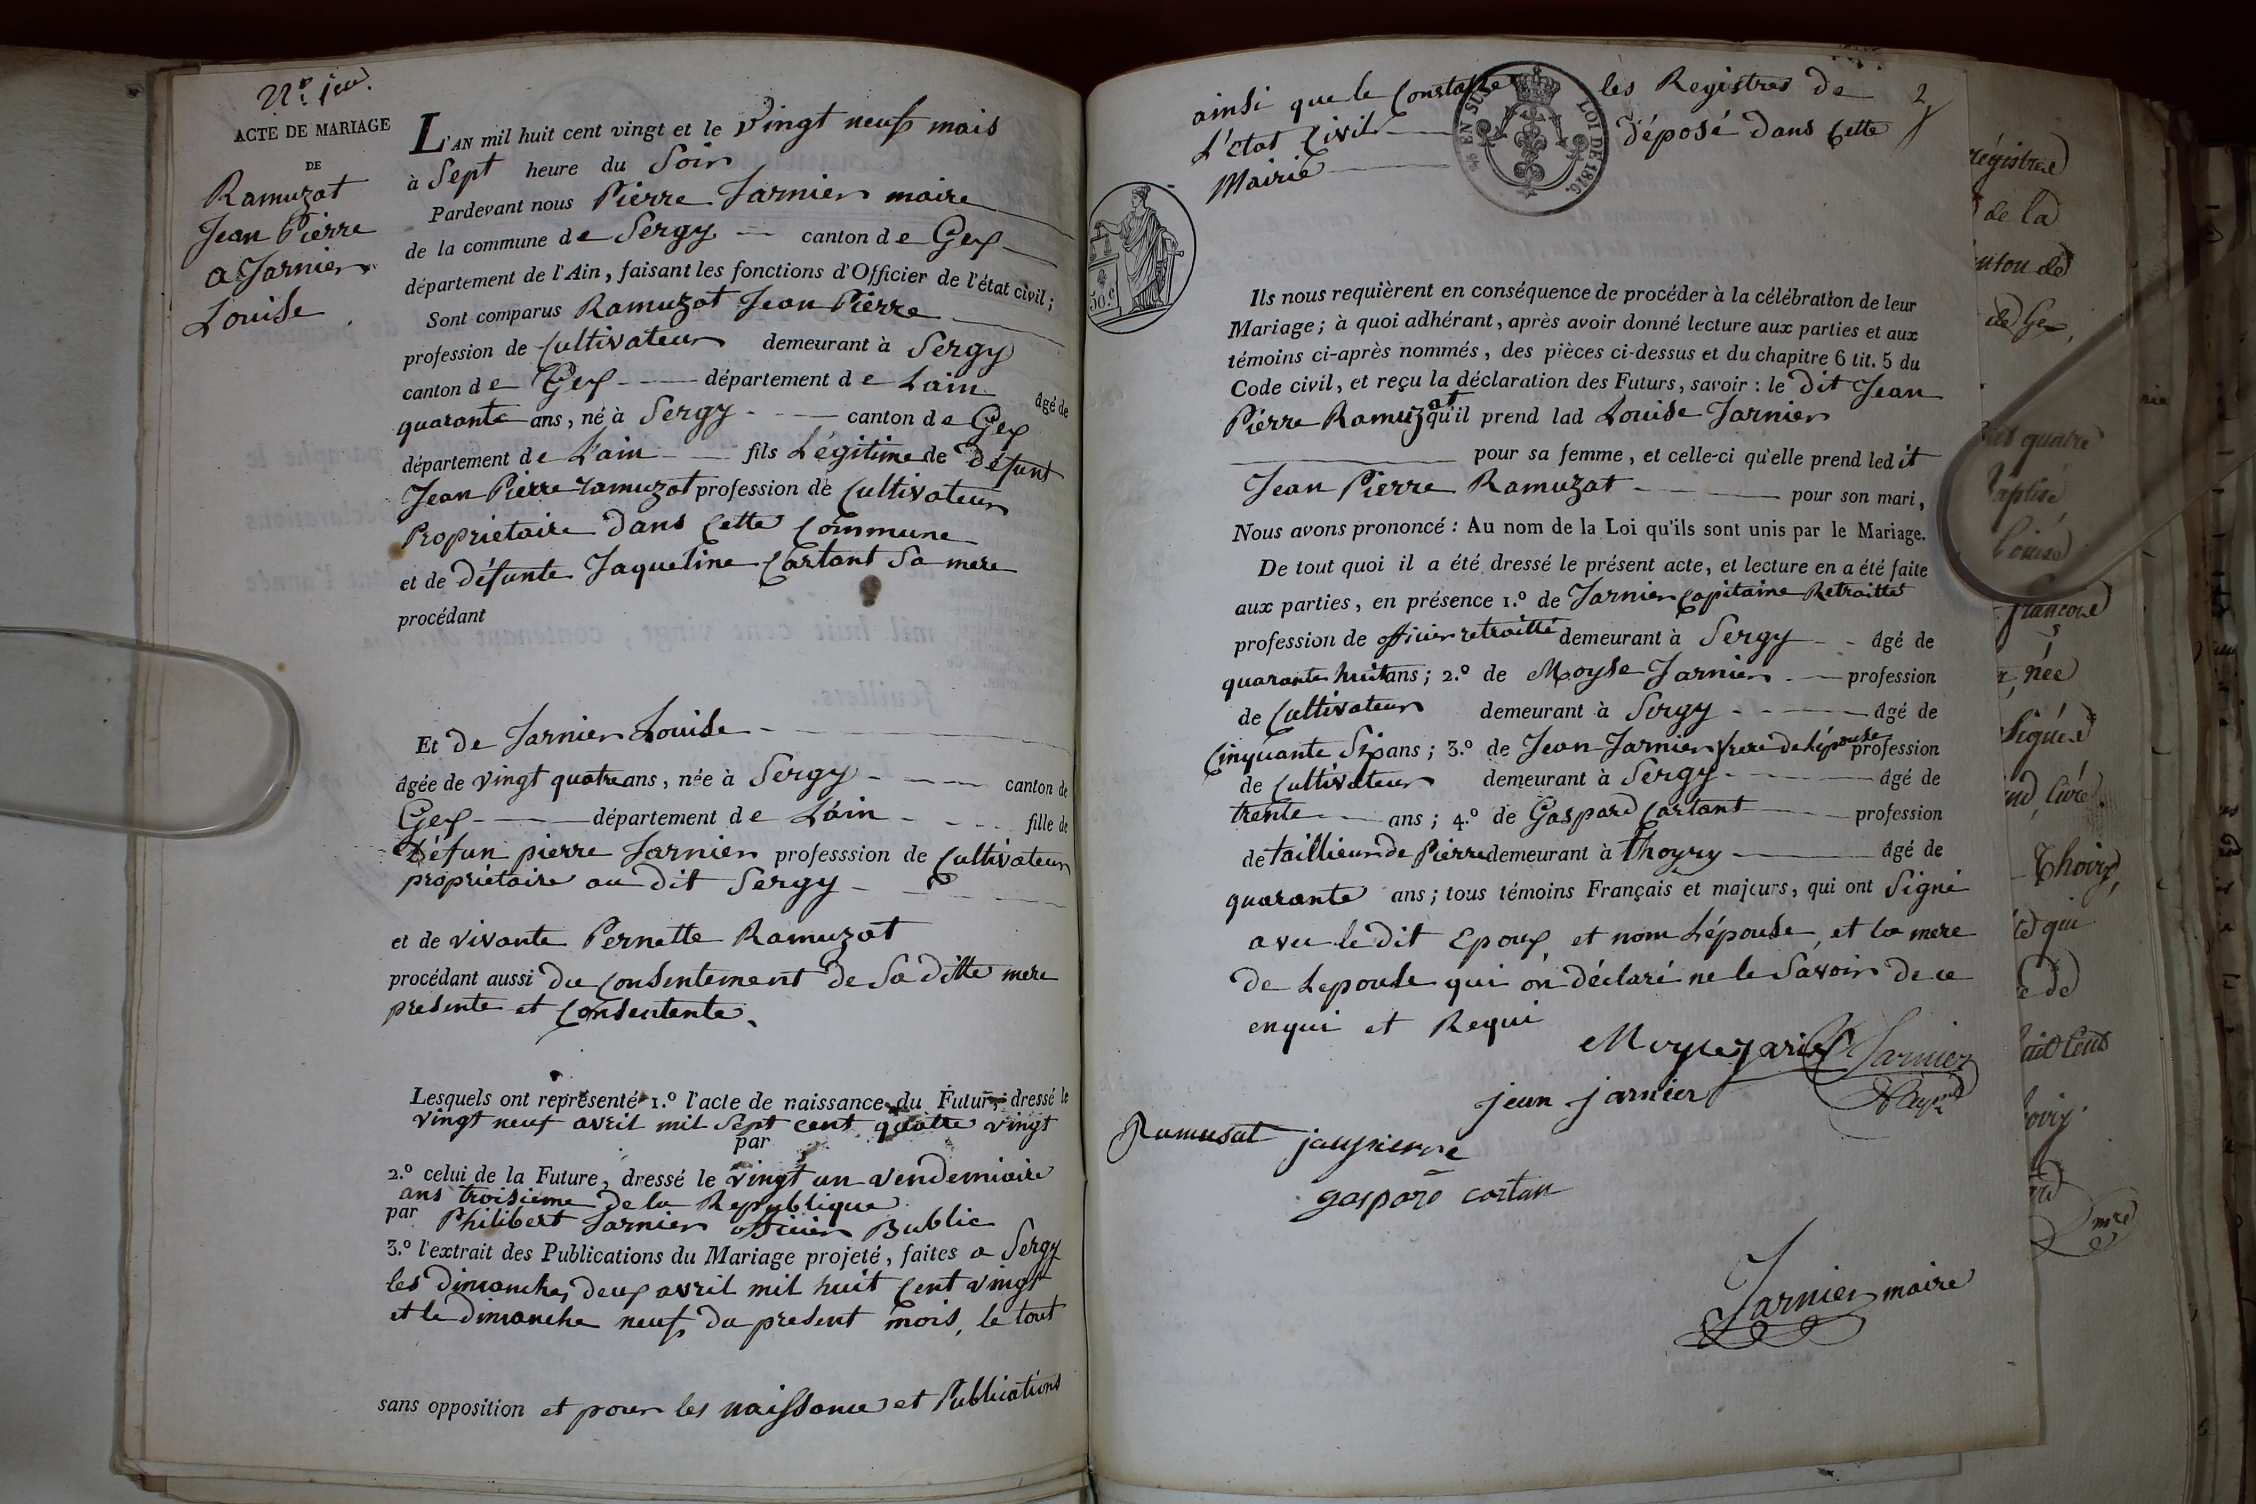 N.o 1er.
ACTE DE MARIAGE
DE
Ramuzat
Jean Pierre
a Jarnier
Louise
L'AN mil huit cent vingt et le vingt neuf mais
à Sept heure du Soir
Pardevant nous Pierre Jarnier maire
de la commune de Sergy canton de Gex
département de l'Ain, faisant les fonctions d'Officier de l'état civil;
Sont comparus Ramuzat Jean Pierre
profession de Cultivateur demeurant à Sergy
canton de Gex département de Lain âgé de
quarante ans, né à Sergy canton de Gex
département de L'ain fils Légitime de défunt
Jean Pierre ramuzat profession de Cultivateur
Proprietaire dans Cette Commune
et de défunte Jaqueline Cartant Sa mere
procédant
Et de Jarnier Louise
âgée de vingt quatre ans, née à Sergy canton de
Gex département de Lain fille de
Défun pierre Jarnier professsion de Cultivateur
propriétaire au dit Sergy
et de vivante Pernette Ramuzat
procédant aussi du Consentement de Sa ditte mere
presente et Consentente.
Lesquels ont représenté 1.º l'acte de naissance du Futur, dressé le
vingt neuf avril mil Sept cent quatre vingt
par
2.º celui de la Future, dressé le vingt un vendemiaire
ans troisieme de la Republique
par Philibert Jarnier officier Bublic
3.º l'extrait des Publications du Mariage projeté, faites a Sergy
les dimanches deux avril mil huit Cent vingt
et le dimanche neuf du present mois, le tout
sans opposition et pour les naissance et Publications
ainsi que le Constatte les Registres de 2
L'Etat Civil déposé dans Cette
Mairie
EN SUS LOI DE 1816.
50.c
Ils nous requièrent en conséquence de procéder à la célébration de leur
Mariage; à quoi adhérant, après avoir donné lecture aux parties et aux
témoins ci-après nommés, des pièces ci-dessus et du chapitre 6 tit. 5 du
Code civil, et reçu la déclaration des Futurs, savoir: le dit Jean
Pierre Ramuzat qu'il prend lad Louise Jarnier
pour sa femme, et celle-ci qu'elle prend ledit
Jean Pierre Ramuzat pour son mari,
Nous avons prononcé: Au nom de la Loi qu'ils sont unis par le Mariage.
De tout quoi il a été dressé le présent acte, et lecture en a été faite
aux parties, en présence 1.º de Jarnier Capitaine Retraitté
profession de officier retraitté demeurant à Sergy âgé de
quarante huit ans; 2.º de Moyse Jarnier profession
de Cultivateur demeurant à Sergy âgé de
Cinquante Six ans; 3.º de Jean Jarnier frere de Lépouse profession
de Cultivateur demeurant à Sergy âgé de
trente ans; 4.º de Gaspard Cartant profession
de taillieur de Pierre demeurant à Thoyry âgé de
quarante ans; tous témoins Français et majeurs, qui ont Signé
avec le dit Epoux et nom Lépouse, et la mere
de Lepouse qui on déclaré ne le Savoir de ce
enqui et Requi
Moyse jarnier Jarnier
jean jarnier
Ramusat janpierre
gaspard cartan
Jarnier maire
de la
de Gex,
quatre
née
Thoiry,
qui
mre